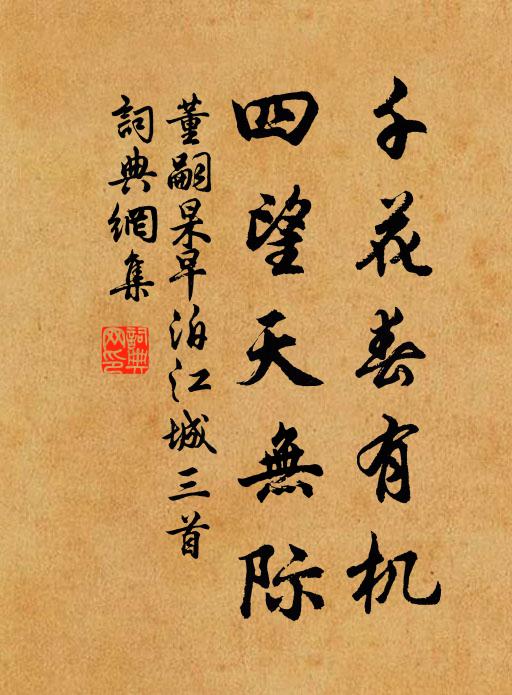 千花春有机
四望天無際
董嗣杲早泊江城三首
詞典網集
詞典網印